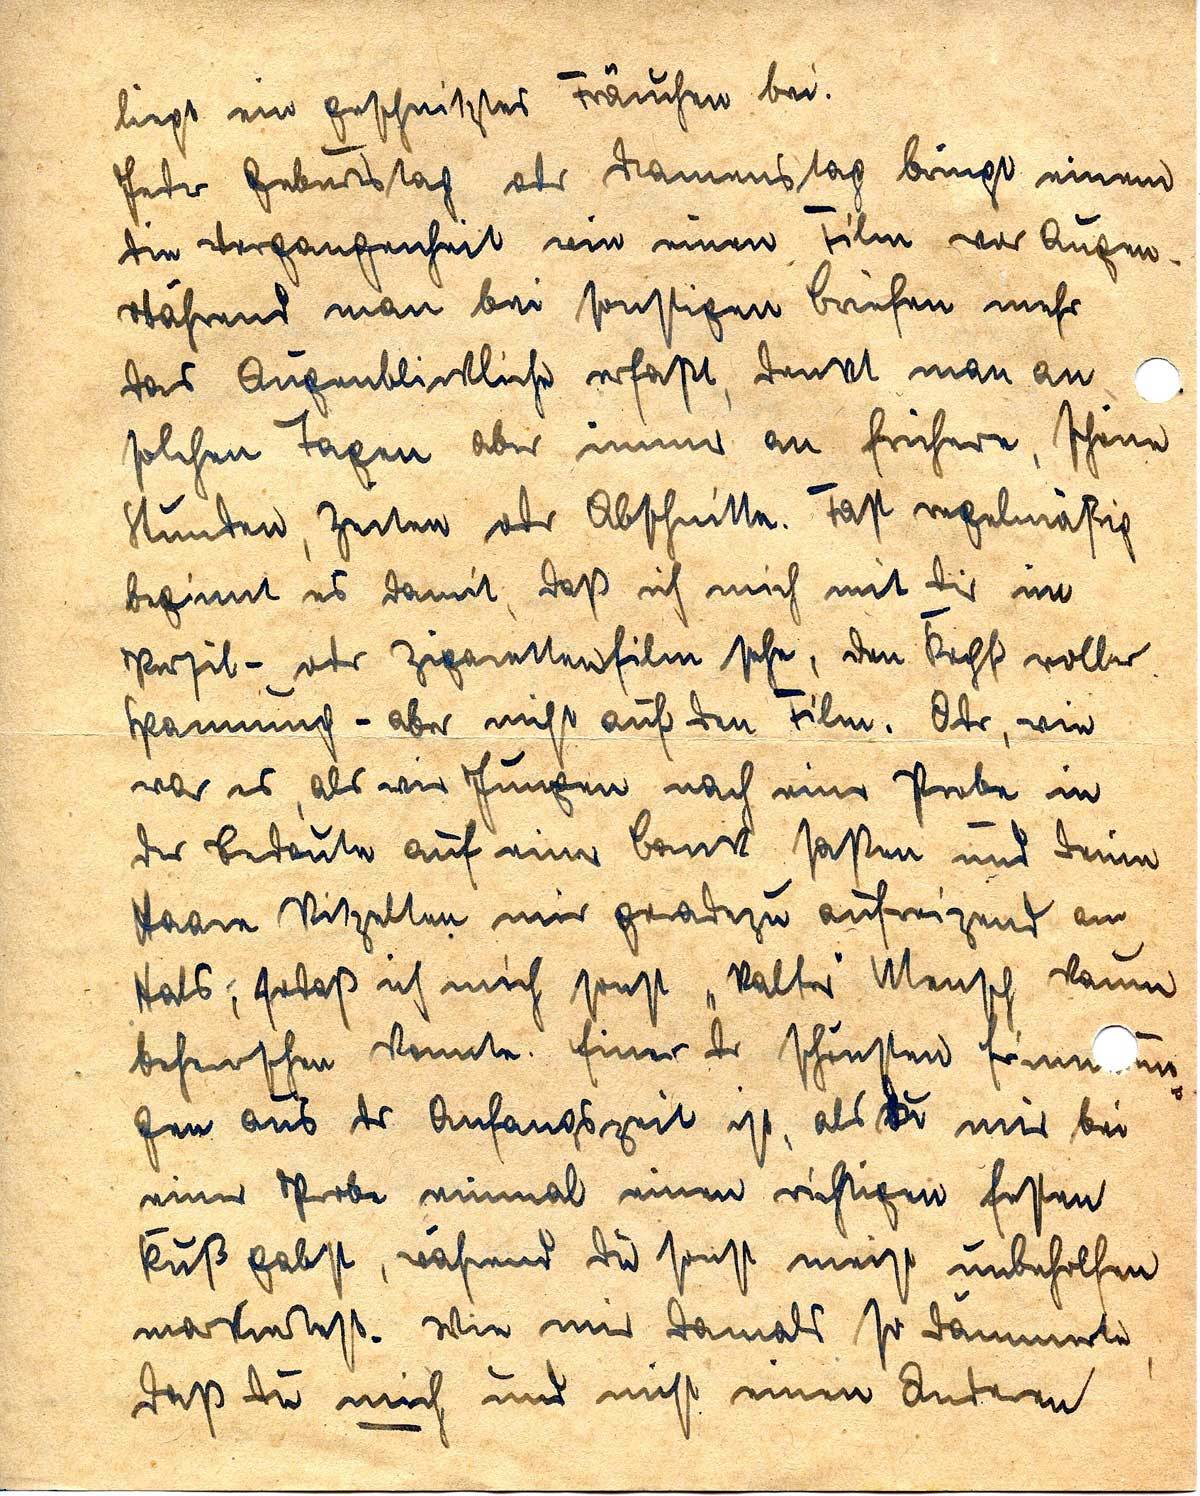 liegt ein geschnitztes Fräuchen bei.
Jeder Geburtstag oder Namenstag bringt einem
die Vergangenheit wie einen Film vor Augen.
Während man bei sonstigen Briefen mehr
das Augenblickliche erfaßt, denkt man an
solchen Tagen aber immer an frühere, schöne
Stunden, Zeiten oder Abschnitte. Fast regelmäßig
beginnt es damit, daß ich mich mit Dir im
Persil- oder Zigarettenfilm sehe, den Kopf voller
Spannung - aber nicht auf den Film. Oder, wie
war es, als wir Jungen nach einer Probe in
der auf einer Bank saßen und Deine
Haare kitzelten mir geradezu aufreizend am
Hals; sodaß ich mich sonst „kalter" Mensch kaum
beherrschen konnte. Einer der schönsten Erinn un
gen aus der Anfangszeit ist, als Du mir bei
einer Probe einmal einen richtigen festen
Kuß gabst, während Du sonst meist unbeholfen
markiertest. Wie mir damals so dämmerte,
daß Du mich und nicht einen Anderen